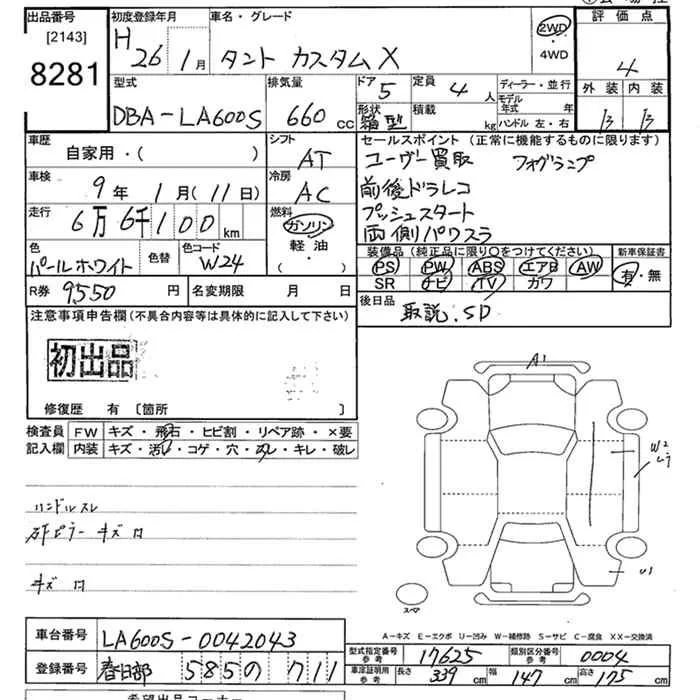 出品番号 初度登録年月 車名・グレード 評価点
[2143] H 26年 1月 タント カスタムX 2WD・4WD 4
8281
型式 排気量 ドア 5 定員 4人 ディーラー・並行 外装 内装
DBA-LA600S 660cc 形状 箱型 積載 kg モデル年式 年 ハンドル 左・右 B B
車歴 自家用・( ) シフト AT セールスポイント (正常に機能するものに限ります)
車検 9年 1月 (11日) 冷房 AC ユーザー買取 フォグランプ
前後ドラレコ
走行 6万6千100km 燃料 ガソリン プッシュスタート
軽油 両側パワスラ
( ・ )
色 パールホワイト 色替 色コード W24
装備品 (純正品に限り○をつけてください) 新車保証書
PS PW ABS エアB AW 有・無
SR ナビ TV カワ
R券 9550円 名変期限 月 日 後日品 取説.SD
注意事項申告欄 (不具合内容等は具体的に記入して下さい)
初出品
修復歴 有 〔箇所 〕
検査員記入欄 FW キズ・飛石・ヒビ割・リペア跡・×要
内装 キズ・汚レ・コゲ・穴・スレ・キレ・破レ
ハンドルスレ
キズ
A1
W2
ムラ
U1
スペア
A-キズ E-エクボ U-凹み W-補修跡 S-サビ C-腐食 XX-交換済
車台番号 LA600S-0042043
型式指定番号 参考 17625 類別区分番号 参考 0004
登録番号 春日部 585の711
車庫証明用 参考 長さ 339cm 幅 147cm 高さ 175cm
希望出品コーナー